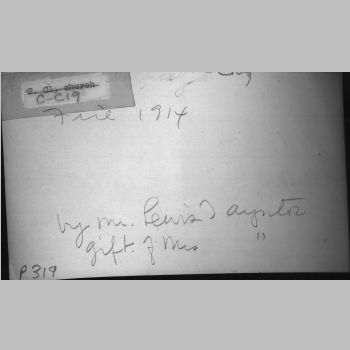 e. ch. church
C-C19
Fire 1914
by Mr. Lewis
gift of Mrs "
P319